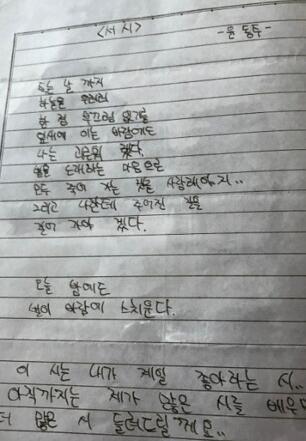 <서시>
-윤동주-
죽는 날 까지
하늘을 우러러
한 점 부끄럼 없기를
잎새에 이는 바람에도
나는 괴로워 했다.
별을 노래하는 마음으로
모두 죽어 가는 것을 사랑해야지..
그리고 나한테 주어진 길을
걸어 가야 겠다.
오늘 밤에도
별이 바람에 스치운다.
이 시는 내가 제일 좋아하는 시..
아직까지는 제가 많은 시를 배우면
더 많은 시 들려드릴께요..